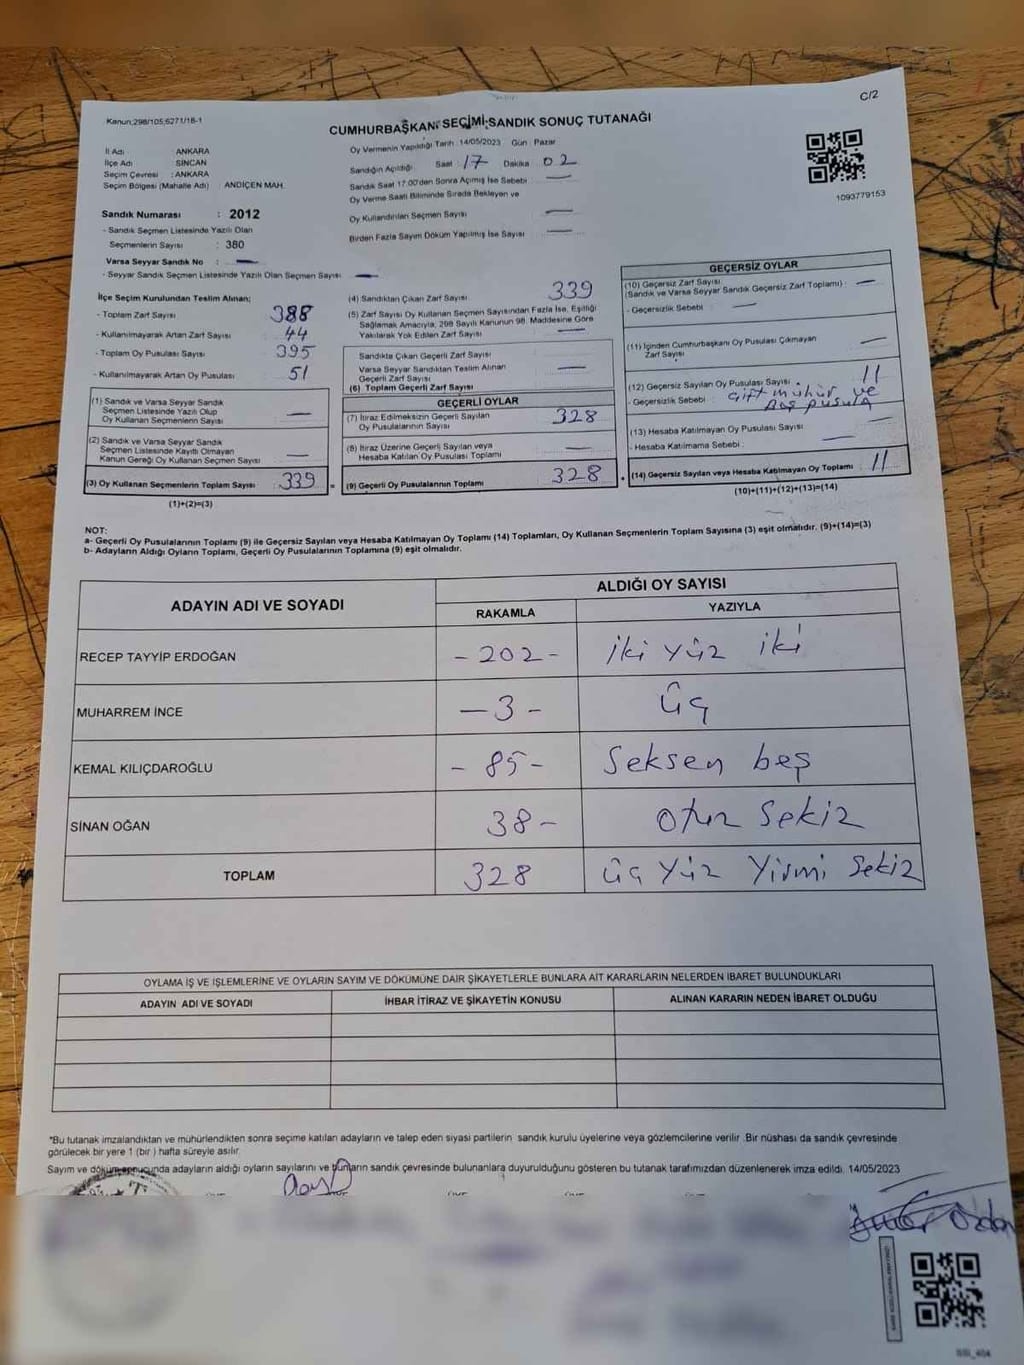 C/2
Kanun;298/105,6271/18-1
CUMHURBAŞKANI SEÇİMİ SANDIK SONUÇ TUTANAĞI
İl Adı : ANKARA
İlçe Adı : SİNCAN
Seçim Çevresi : ANKARA
Seçim Bölgesi (Mahalle Adı) : ANDİÇEN MAH.
Oy Vermenin Yapıldığı Tarih :14/05/2023 Gün : Pazar
Sandığın Açıldığı Saat : 17 Dakika 02
Sandık Saat 17.00'den Sonra Açımış İse Sebebi —
Oy Verme Saati Bitiminde Sırada Bekleyen ve
Oy Kullandırılan Seçmen Sayısı —
Birden Fazla Sayım Döküm Yapılmış İse Sayısı —
1093779153
Sandık Numarası : 2012
- Sandık Seçmen Listesinde Yazılı Olan
Seçmenlerin Sayısı : 380
Varsa Seyyar Sandık No : —
- Seyyar Sandık Seçmen Listesinde Yazılı Olan Seçmen Sayısı : —
İlçe Seçim Kurulundan Teslim Alınan;
- Toplam Zarf Sayısı : 388
- Kullanılmayarak Artan Zarf Sayısı : 44
- Toplam Oy Pusulası Sayısı : 395
- Kullanılmayarak Artan Oy Pusulası : 51
(1) Sandık ve Varsa Seyyar Sandık
Seçmen Listesinde Yazılı Olup
Oy Kullanan Seçmenlerin Sayısı —
(2) Sandık ve Varsa Seyyar Sandık
Seçmen Listesinde Kayıtlı Olmayan
Kanun Gereği Oy Kullanan Seçmen Sayısı —
(3) Oy Kullanan Seçmenlerin Toplam Sayısı 339
(1)+(2)=(3)
(4) Sandıktan Çıkan Zarf Sayısı 339
(5) Zarf Sayısı Oy Kullanan Seçmen Sayısından Fazla İse, Eşitliği
Sağlamak Amacıyla, 298 Sayılı Kanunun 98. Maddesine Göre
Yakılarak Yok Edilen Zarf Sayısı —
Sandıkta Çıkan Geçerli Zarf Sayısı
Varsa Seyyar Sandıktan Teslim Alınan
Geçerli Zarf Sayısı —
(6) Toplam Geçerli Zarf Sayısı
GEÇERLİ OYLAR
(7) İtiraz Edilmeksizin Geçerli Sayılan
Oy Pusulalarının Sayısı 328
(8) İtiraz Üzerine Geçerli Sayılan veya
Hesaba Katılan Oy Pusulası Toplamı —
(9) Geçerli Oy Pusulalarının Toplamı 328
GEÇERSİZ OYLAR
(10) Geçersiz Zarf Sayısı
(Sandık ve Varsa Seyyar Sandık Geçersiz Zarf Toplamı) : —
- Geçersizlik Sebebi : —
(11) İçinden Cumhurbaşkanı Oy Pusulası Çıkmayan
Zarf Sayısı —
(12) Geçersiz Sayılan Oy Pusulası Sayısı 11
- Geçersizlik Sebebi : Çift mühür ve
Boş pusula
(13) Hesaba Katılmayan Oy Pusulası Sayısı —
- Hesaba Katılmama Sebebi : —
(14) Geçersiz Sayılan veya Hesaba Katılmayan Oy Toplamı 11
(10)+(11)+(12)+(13)=(14)
NOT:
a- Geçerli Oy Pusulalarının Toplamı (9) ile Geçersiz Sayılan veya Hesaba Katılmayan Oy Toplamı (14) Toplamları, Oy Kullanan Seçmenlerin Toplam Sayısına (3) eşit olmalıdır. (9)+(14)=(3)
b- Adayların Aldığı Oyların Toplamı, Geçerli Oy Pusulalarının Toplamına (9) eşit olmalıdır.
ADAYIN ADI VE SOYADI
ALDIĞI OY SAYISI
RAKAMLA YAZIYLA
RECEP TAYYİP ERDOĞAN - 202 - iki yüz iki
MUHARREM İNCE - 3 - üç
KEMAL KILIÇDAROĞLU - 85 - Seksen beş
SİNAN OĞAN 38 - otuz sekiz
TOPLAM 328 üç yüz yirmi sekiz
OYLAMA İŞ VE İŞLEMLERİNE VE OYLARIN SAYIM VE DÖKÜMÜNE DAİR ŞİKAYETLERLE BUNLARA AİT KARARLARIN NELERDEN İBARET BULUNDUKLARI
ADAYIN ADI VE SOYADI İHBAR İTİRAZ VE ŞİKAYETİN KONUSU ALINAN KARARIN NEDEN İBARET OLDUĞU
*Bu tutanak imzalandıktan ve mühürlendikten sonra seçime katılan adayların ve talep eden siyasi partilerin sandık kurulu üyelerine veya gözlemcilerine verilir .Bir nüshası da sandık çevresinde
görülecek bir yere 1 (bir ) hafta süreyle asılır.
Sayım ve döküm sonucunda adayların aldığı oyların sayılarını ve bunların sandık çevresinde bulunanlara duyurulduğunu gösteren bu tutanak tarafımızdan düzenlenerek imza edildi. 14/05/2023